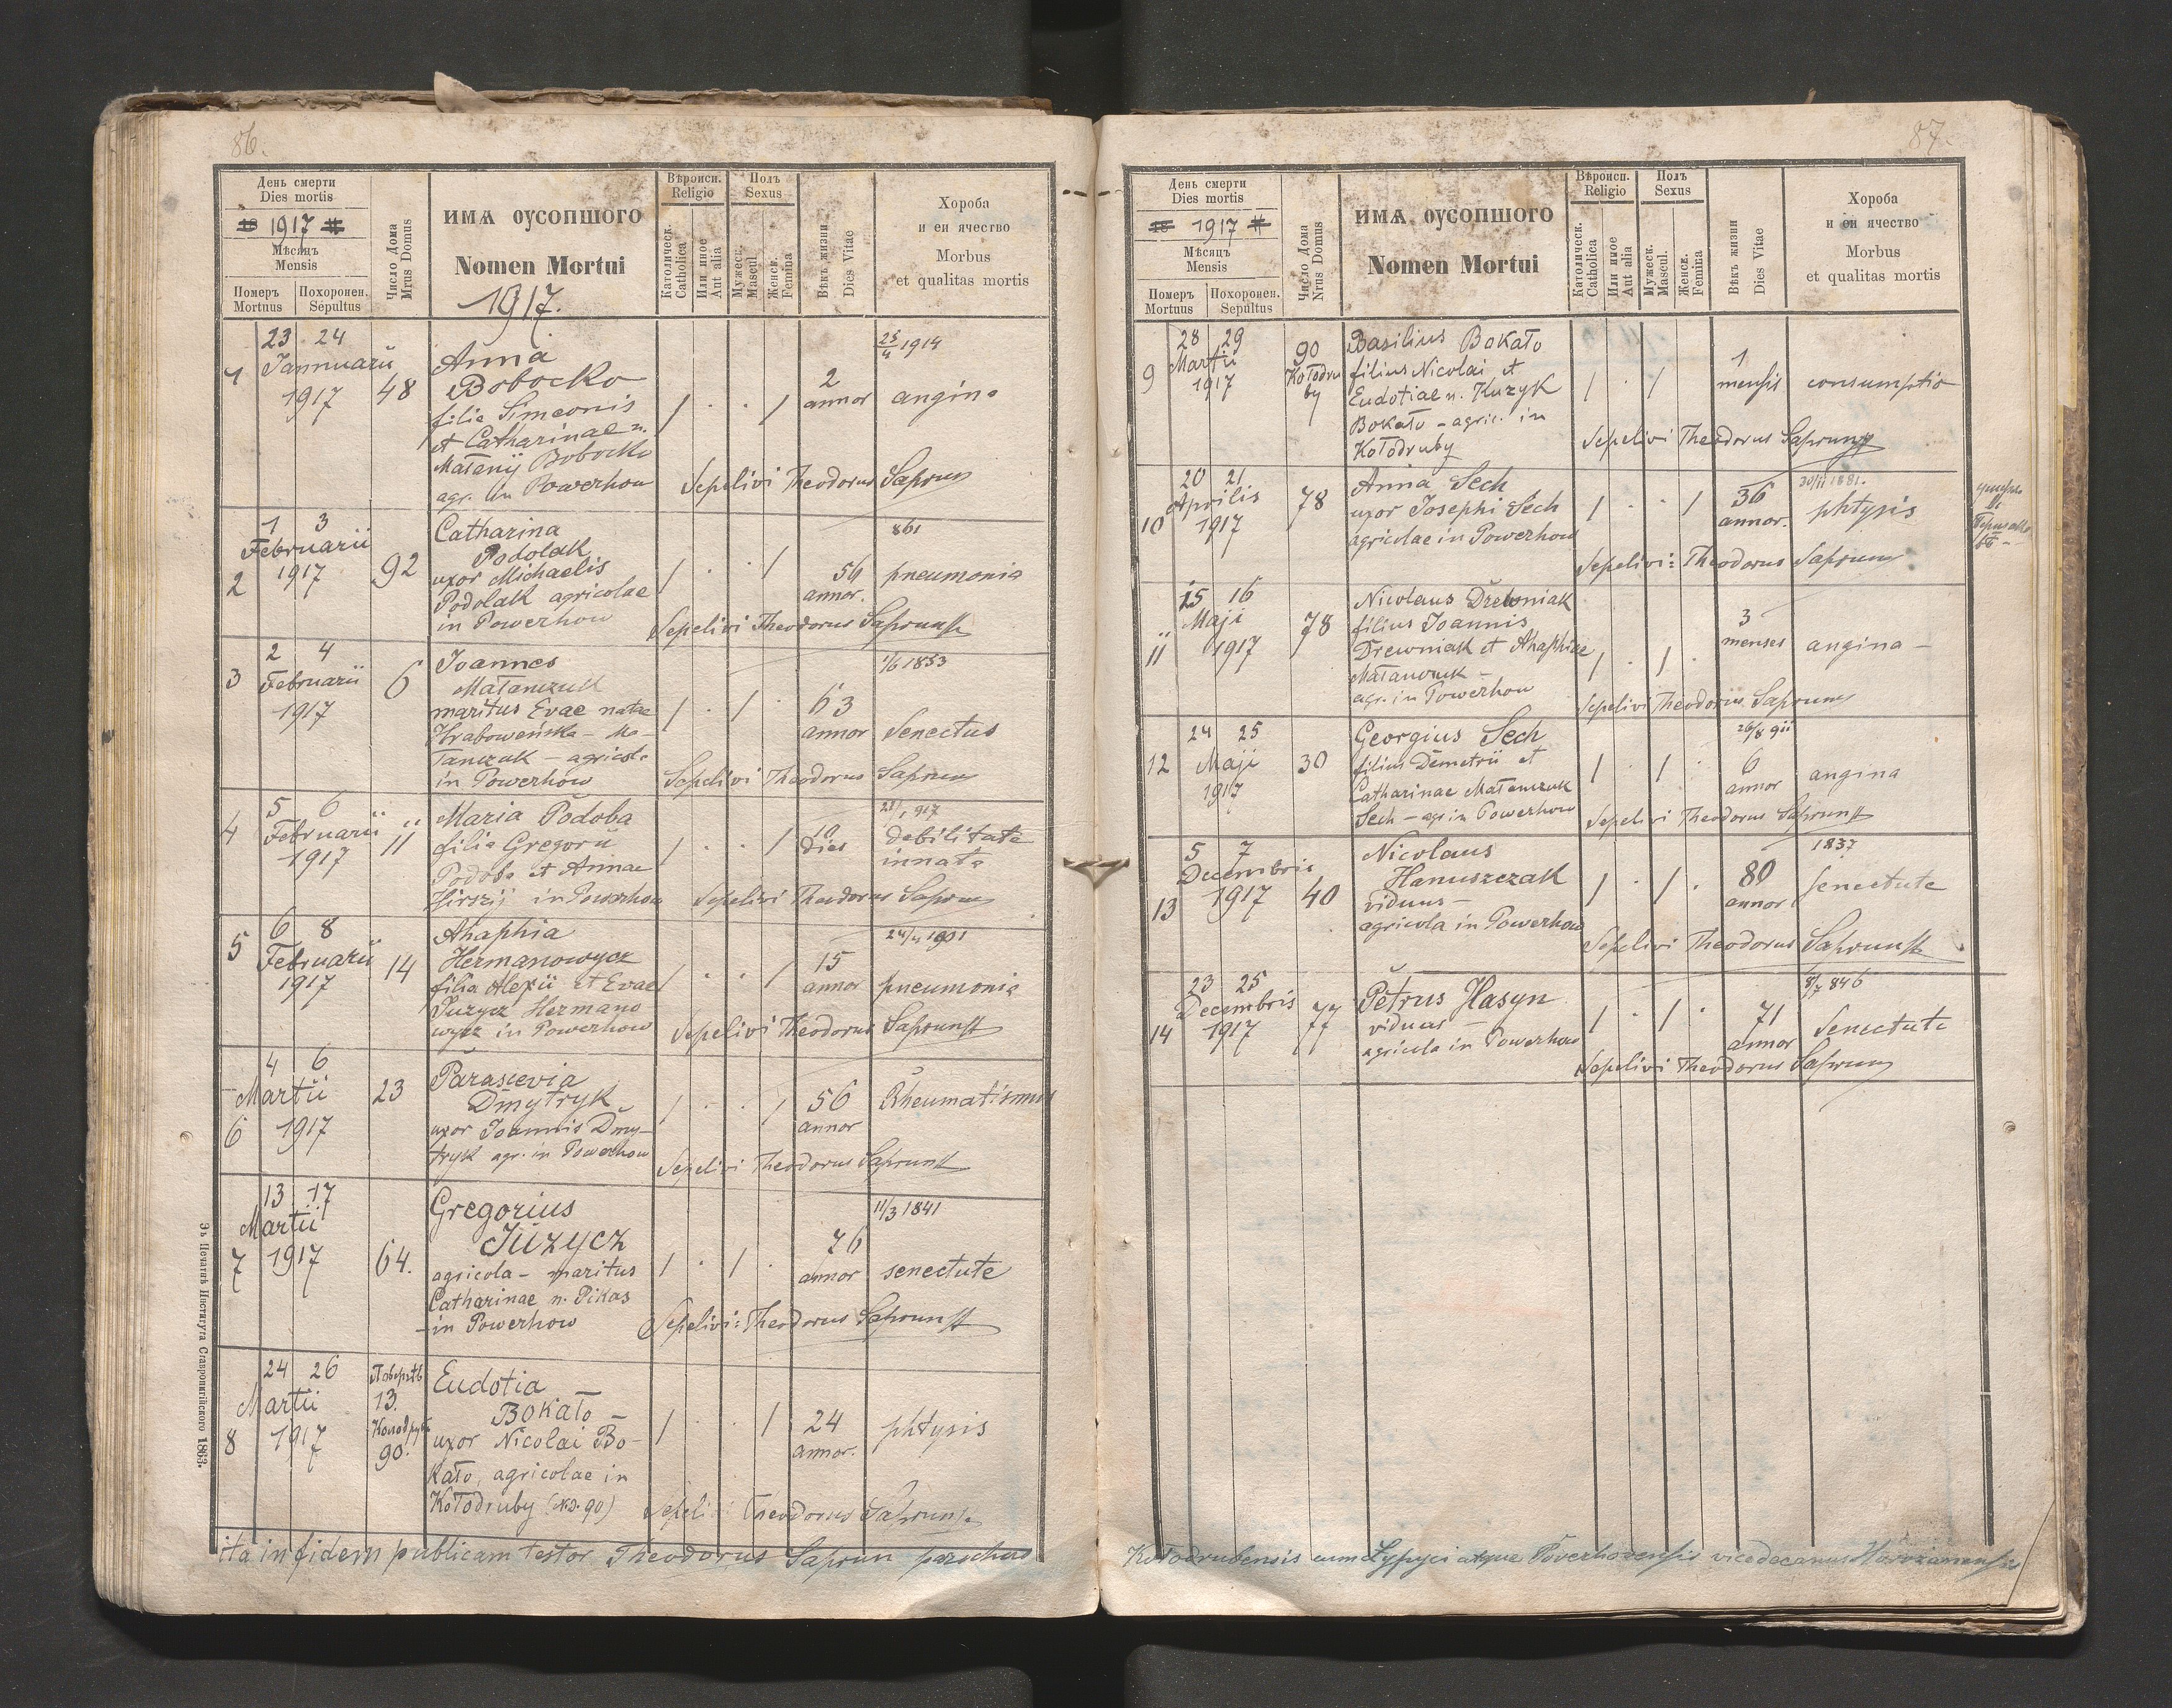 86.
День смерти
Dies mortis
18 1917
Мѣсяцъ
Mensis
Померъ Mortuus
Похоронен. Sepultus
Число Дома
Mrus Domus
ИМѦ ОУСОПШОГО
Nomen Mortui
1917.
Вѣроисп.
Religio
Католическ.
Catholica
Или иное
Aut alia
Полъ
Sexus
Мужеск.
Mascul.
Женск.
Femina
Вѣкъ жизни
Dies Vitae
Хороба
и еи ячество
Morbus
et qualitas mortis
1
23 24
Jannuarii
1917
48
Anna
Bobocko
filia Simeonis
et Catharinae n.
Matanij Bobocko
agr. in Powerhow
2
annor
25/4 1914
angina
Sepelivi Theodorus Saprun
2
1 3
Februarii
1917
92
Catharina
Podolak
uxor Michaelis
Podolak agricolae
in Powerhow
56
annor.
861
pneumonia
Sepelivi Theodorus Saprun
3
2 4
Februarii
1917
6
Joannes
Matanczuk
maritus Evae natae
Hraboweńska – Ma-
tanczuk – agricola
in Powerhow
63
annor
1/6 1853
Senectus
Sepelivi Theodorus Saprun
4
5 6
Februarii
1917
11
Maria Podoba
filia Gregorii
Podoba et Annae
Hirszij in Powerhow
10
dies
917
debilitate
innata
Sepelivi Theodorus Saprun
5
6 8
Februarii
1917
14
Ahaphia
Hermanowycz
filia Alexii et Evae
Juzycz Hermano
wycz in Powerhow
15
annor
1901
pneumonia
Sepelivi Theodorus Saprun
6
4 6
Martii
1917
23
Parascevia
Dmytryk
uxor Joannis Dmy-
tryk agr. in Powerhow
56
annor
Rheumatismus
Sepelivi Theodorus Saprun
7
13 17
Martii
1917
64.
Gregorius
Juzycz
agricola – maritus
Catharinae n. Pikas
in Powerhow
76
annor
11/3 1841
senectute
Sepelivi: Theodorus Saprun
8
24 26
Martii
1917
13.
90.
Eudotia
Bokało –
uxor Nicolai Bo-
kało, agricolae in
Kołodruby (N.D. 90)
24
annor.
phtysis
Sepelivi Theodorus Saprun
ita in fidem publicam testor Theodorus Saprun parochus
Зъ Печатнѣ Института Ставропигійского 1883.
87.
День смерти
Dies mortis
18 1917
Мѣсяцъ
Mensis
Померъ Mortuus
Похоронен. Sepultus
Число Дома
Nrus Domus
ИМѦ ОУСОПШОГО
Nomen Mortui
Вѣроисп.
Religio
Католическ.
Catholica
Или иное
Aut alia
Полъ
Sexus
Мужеск.
Mascul.
Женск.
Femina
Вѣкъ жизни
Dies Vitae
Хороба
и еи ячество
Morbus
et qualitas mortis
9
28 29
Martii
1917
90
Kołodru
by
Basilius Bokało
filius Nicolai et
Eudotiae n. Kuzyk
Bokało – agric. in
Kołodruby
1
mensis
consumptio
Sepelivi Theodorus Saprun
10
20 21
Aprilis
1917
78
Anna Sech
uxor Josephi Sech
agricolae in Powerhow
36
annor.
1881.
phtysis
Sepelivi: Theodorus Saprun
11
15 16
Maji
1917
78
Nicolaus Drewniak
filius Joannis
Drewniak et Ahaphiae
Matanczuk –
agr. in Powerhow
3
menses
angina –
Sepelivi Theodorus Saprun
12
24 25
Maji
1917
30
Georgius Sech
filius Demetrii et
Catharinae Matanczuk
Sech – agr in Powerhow
6
annor
26/8 911
angina
Sepelivi Theodorus Saprun
13
5 7
Decembris
1917
40
Nicolaus
Hanuszczak
viduus –
agricola in Powerhow
80
annor
1837
senectute
Sepelivi Theodorus Saprun
14
23 25
Decembris
1917
77
Petrus Hasyn
viduus –
agricola in Powerhow
71
annor
8/7 846
Senectute
Sepelivi Theodorus Saprun
Kołodrubensis cum Lypyci atque Powerhovensis vicedecanus